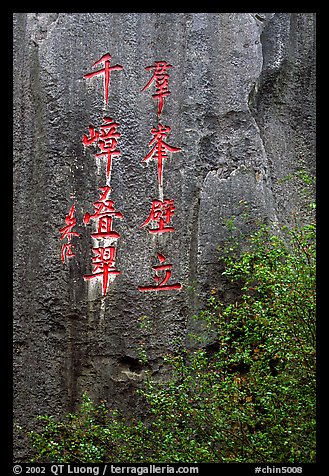 羣峯壁立
千嶂叠翠
朱德
© 2002 QT Luong / terragalleria.com
#chin5008